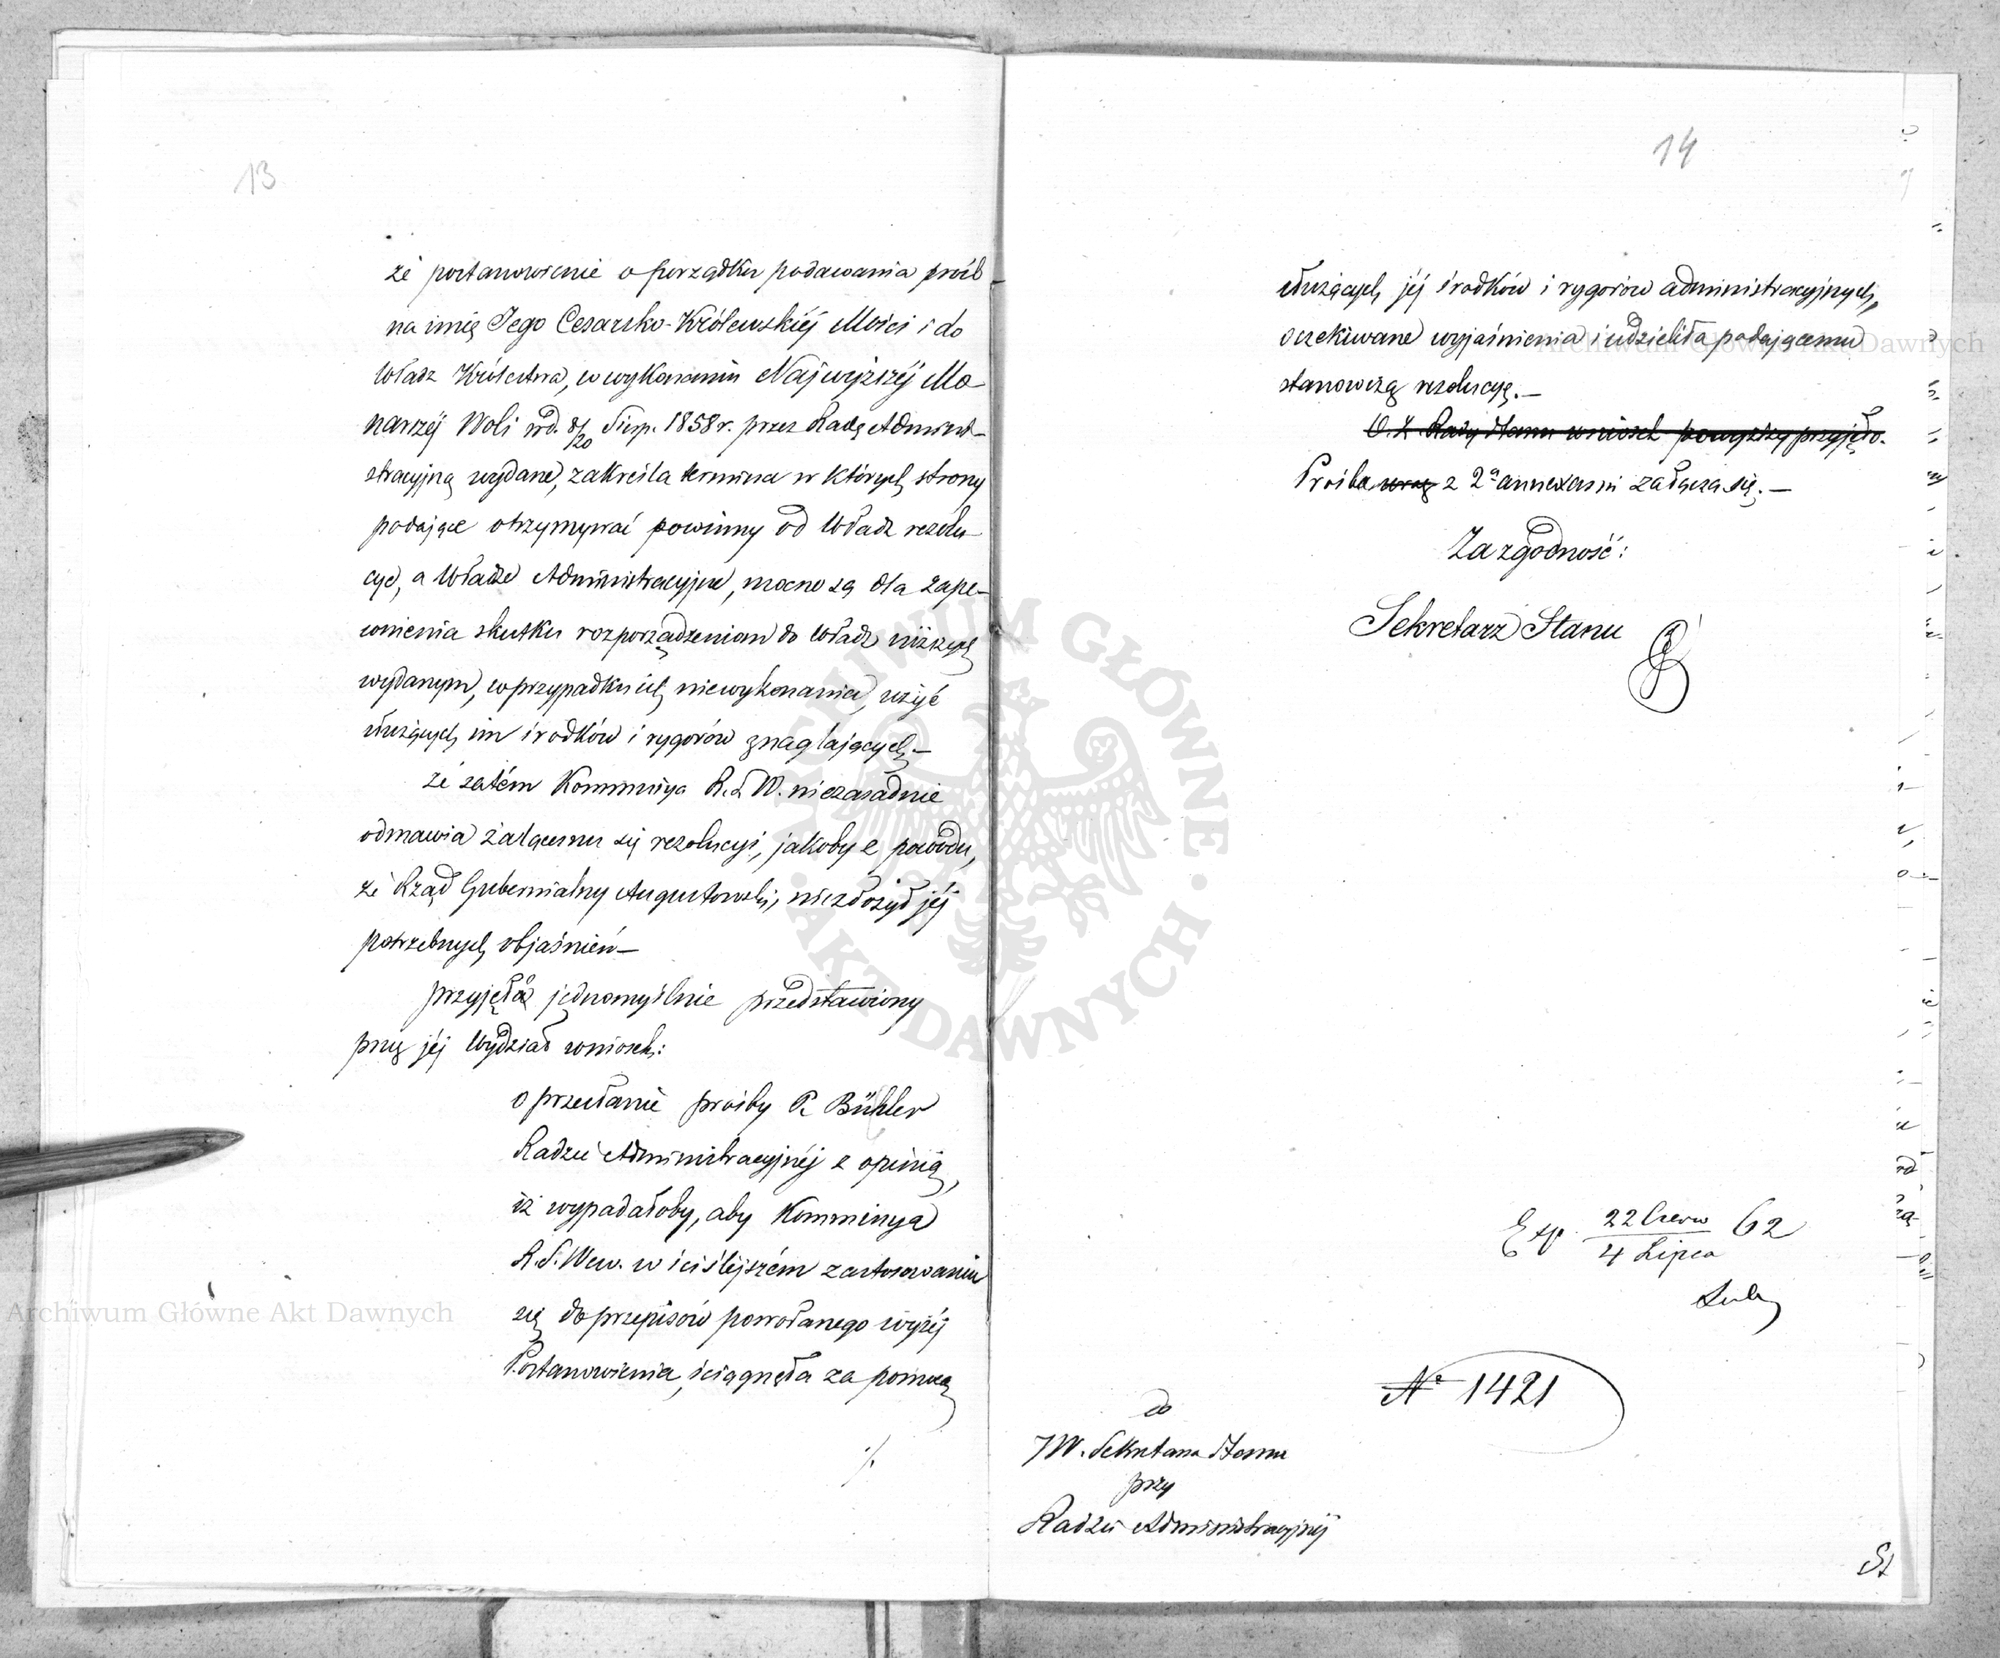 13
że postanowienie o porządku podawania próśb
na imię Jego Cesarsko-Królewskiéj Mości i do
Władz Królestwa, w wykonaniu Najwyższéj Mo-
narszéj Woli z d. 8/20 Sierp. 1858 r. przez Radę Admini-
stracyjną wydane, zakreśla termina w których strony
podające otrzymywać powinny od Władz rezolu-
cye, a Władze Administracyjne, mocne są dla zape-
wnienia skutku rozporządzeniom do Władz niższych
wydanym, w przypadku ich niewykonania, użyć
służących im środków i rygorów znaglających.—
że zatém Kommissya R. S. W. niezasadnie
odmawia żalącemu się rezolucyi, jakoby z powodu,
że Rząd Gubernialny Augustowski, niezłożył jéj
potrzebnych objaśnień—
przyjęła jednomyślnie przedstawiony
przez jéj Wydział wniosek:
o przesłanie prośby P. Bühler
Radzie Administracyjnéj z opinią,
iż wypadałoby, aby Kommissya
R. S. Wew. w ściślejszém zastosowaniu
się do przepisów powołanego wyżéj
Postanowienia, ściągnęła za pomocą
./.
14
służących jéj środków i rygorów administracyjnych,
oczekiwane wyjaśnienia i udzieliła podającemu
stanowczą rezolucyę.—
O. Z. Rady Stanu wniosek powyższy przyjęło.
Prośba wraz z 2a annexami załącza się.—
Za zgodność:
Sekretarz Stanu
Exp. 22 Czerw/4 Lipca 62
No 1421
do
JW. Sekretarza Stanu
przy
Radzie Administracyjnéj
Archiwum Główne Akt Dawnych
Archiwum Główne Akt Dawnych
ARCHIWUM GŁÓWNE • AKT DAWNYCH •